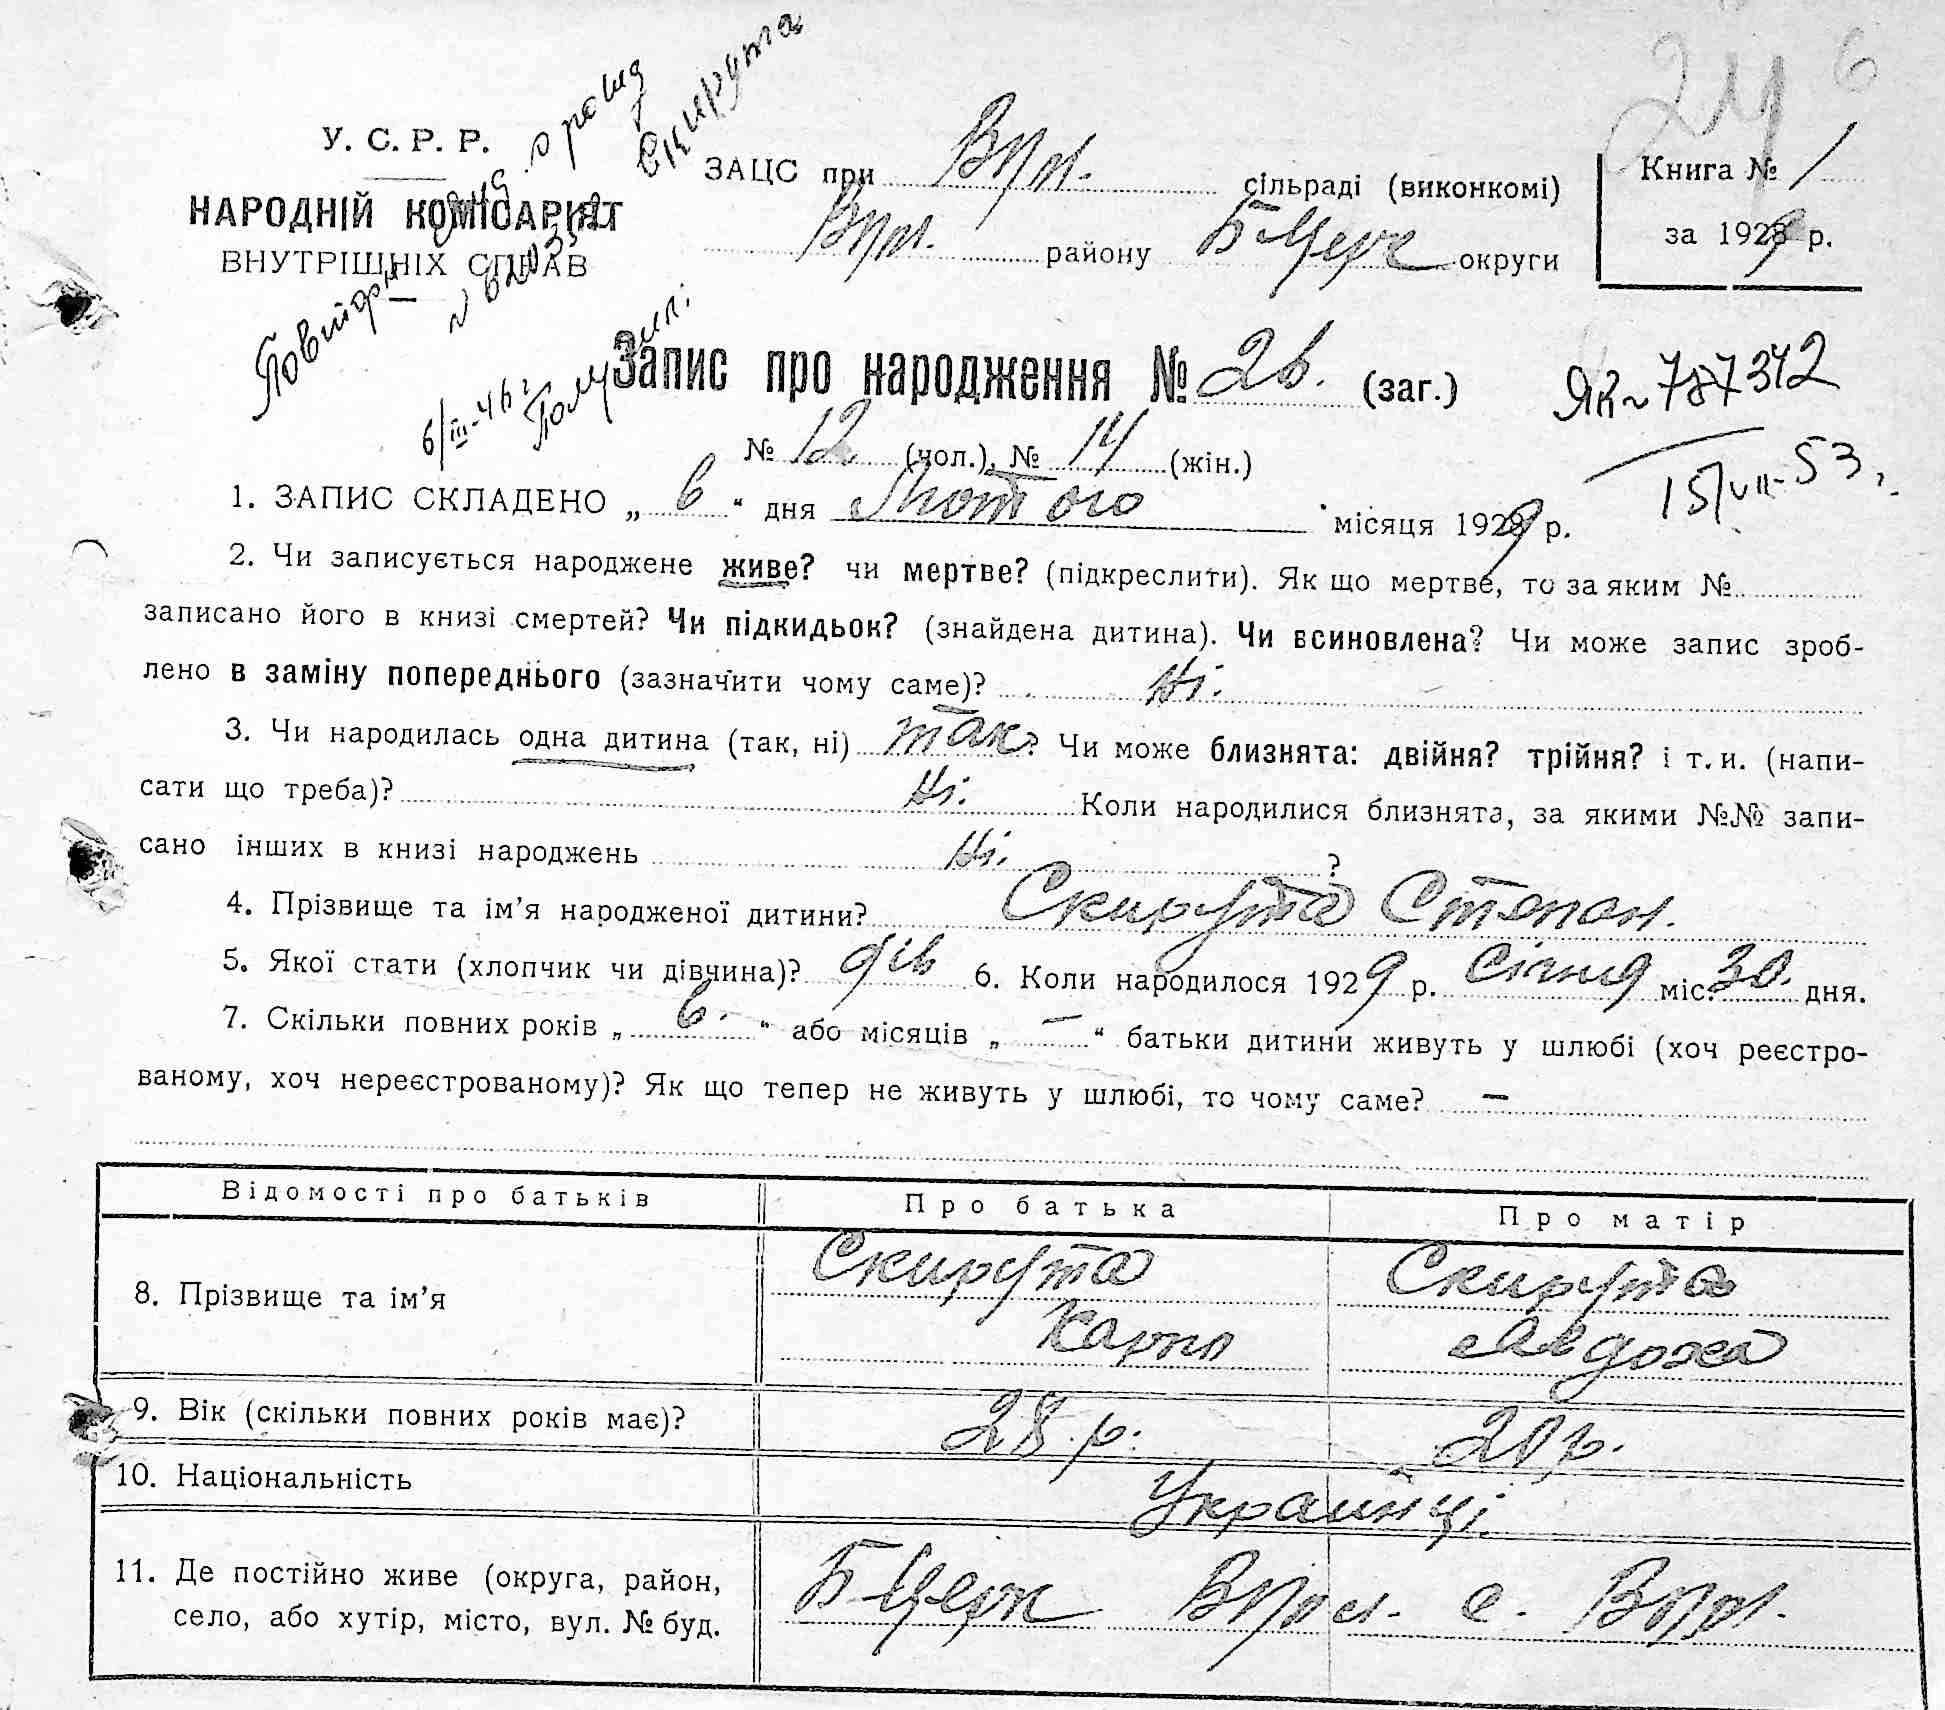 24 6
У. С. Р. Р.
НАРОДНІЙ КОМІСАРІЯТ
ВНУТРІШНІХ СПРАВ
Скирута
ЗАЦС при сільраді (виконкомі)
району Б-Церк округи
Книга № 1
за 1929 р.
6/III-46 г
Запис про народження № 26. (заг.)
ЯК № 787342
15/VII-53.
№ 12 (чол.), № 14 (жін.)
1. ЗАПИС СКЛАДЕНО „ 6 “ дня Лютого місяця 1929 р.
2. Чи записується народжене живе? чи мертве? (підкреслити). Як що мертве, то за яким №
записано його в книзі смертей? Чи підкидьок? (знайдена дитина). Чи всиновлена? Чи може запис зроб-
лено в заміну попереднього (зазначити чому саме)? Ні.
3. Чи народилась одна дитина (так, ні) так? Чи може близнята: двійня? трійня? і т. и. (напи-
сати що треба)? Ні. Коли народилися близнята, за якими №№ запи-
сано інших в книзі народжень Ні. ?
4. Прізвище та ім’я народженої дитини? Скирута Степан.
5. Якої стати (хлопчик чи дівчина)? 6. Коли народилося 1929 р. Січня міс. 30. дня.
7. Скільки повних років „ 6. “ або місяців „ — “ батьки дитини живуть у шлюбі (хоч реєстро-
ваному, хоч нереєстрованому)? Як що тепер не живуть у шлюбі, то чому саме? —
Відомості про батьків Про батька Про матір
8. Прізвище та ім’я Скирута Карпо Скирута
9. Вік (скільки повних років має)? 28 р. р.
10. Національність Українці.
11. Де постійно живе (округа, район,
село, або хутір, місто, вул. № буд. Б-Церк с.